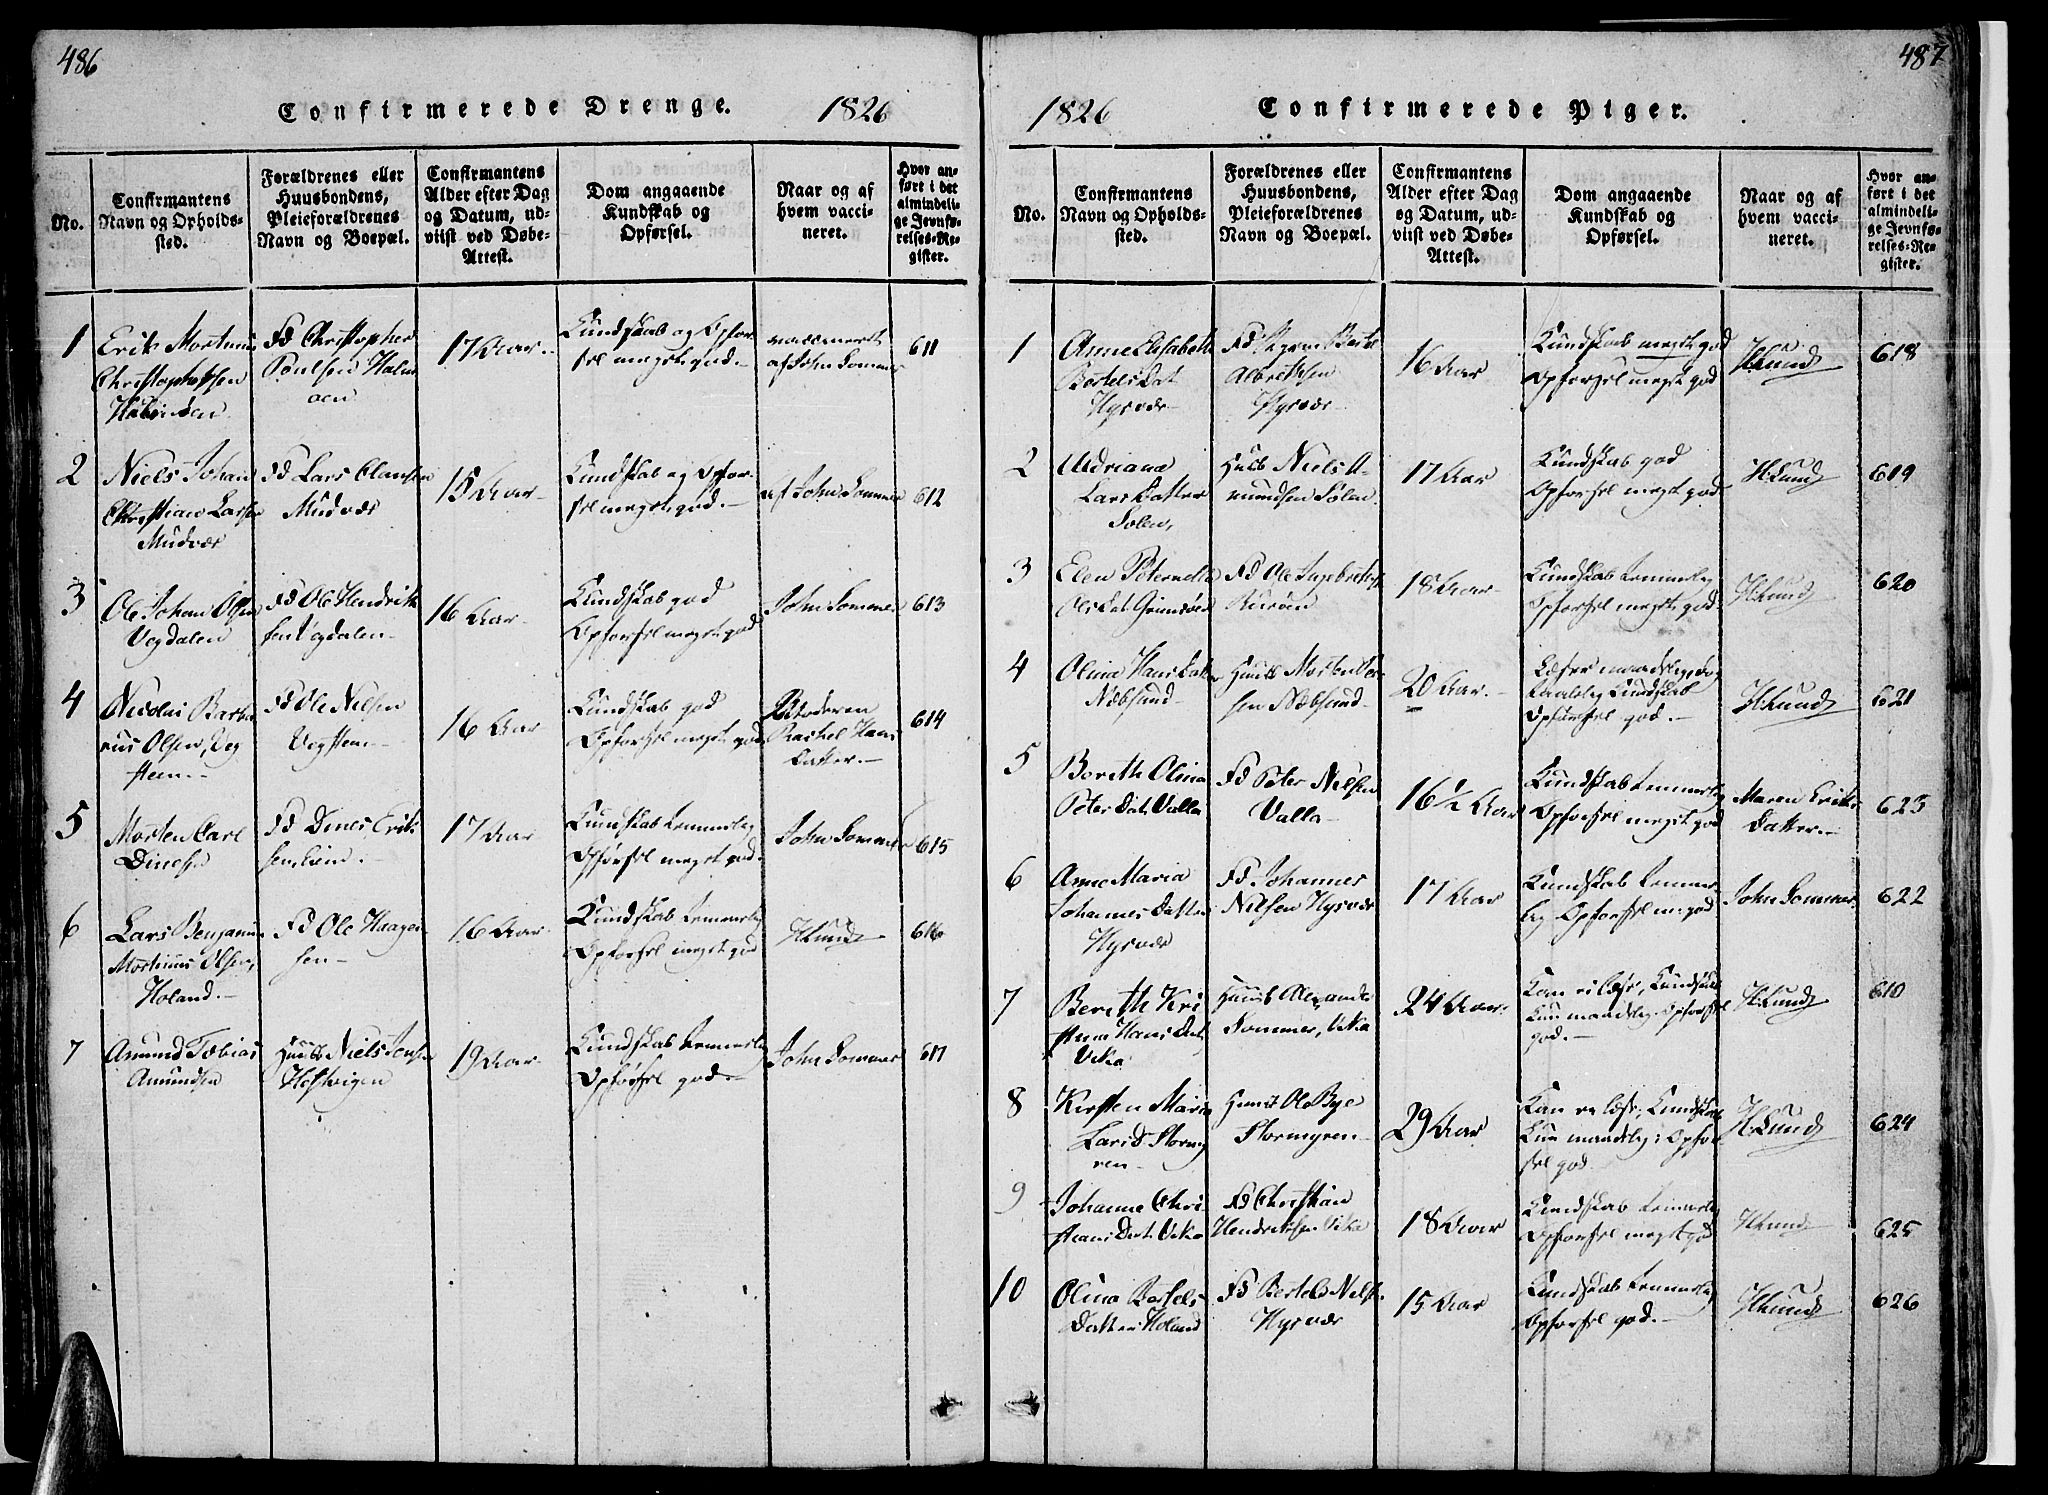 486
Confirmerede Drenge.
1826
No.
Confirmantens
Navn og Opholds-
sted.
Forældrenes eller
Huusbondens,
Pleieforældrenes
Navn og Boepæl.
Confirmantens
Alder efter Dag
og Datum, ud-
viist ved Døbe-
Attest.
Dom angaaende
Kundskab og
Opførsel.
Naar og af
hvem vacci-
neret.
Hvor an-
ført i det
almindeli-
ge Jevnfø-
relses-Re-
gister.
1
Erik Mortinus
Christophersen
Fd Christopher
Poulsen Halm
oen
17 Aar.
Kundskab og Opfør-
sel meget god.
vaccineret
af John Sommer
611
2
Niels Johan
Christian Larsen
Mudvær
Fd Lars Clausen
Mudvær
15 Aar
Kundskab og Opfør-
sel meget god.
af John Sommer
612
3
Ole Johan Olsen
Vegdalen
Fd Ole Hendrik
sen Vegdalen
16 Aar
Kundskab god
Opførsel meget god
John Sommer
613
4
Nicolai Bartho
rius Olsen, Veg
steen
Fd Ole Nielsen
Vegsteen
16 Aar
Kundskab god
Opførsel meget god
Rachel Hans
Datter.
614
5
Morten Carl
Dinesen
Fd Dines Erik
sen
17 Aar
Kundskab temmelig
Opførsel meget god.
John Sommer
615
6
Lars Benjamin
Mortinus Olsen,
Holand.
Fd Ole Haagen
sen
16 Aar
Kundskab temmelig
Opførsel meget god
H Lund
616
7
Amund Tobias
Amundsen
Huusb Niels Jensen
Hestvigen
19 Aar
Kundskab temmelig
Opførsel god.
John Sommer
617
487
1826
Confirmerede Piger.
No.
Confirmantens
Navn og Opholds-
sted.
Forældrenes eller
Huusbondens,
Pleieforældrenes
Navn og Boepæl.
Confirmantens
Alder efter Dag
og Datum, ud-
viist ved Døbe-
Attest.
Dom angaaende
Kundskab og
Opførsel.
Naar og af
hvem vacci-
neret.
Hvor an-
ført i det
almindeli-
ge Jevnfø-
relses-Re-
gister.
1
Anne Elisabeth
Bartels Dat
Hysvær
Albrethsen
Hysvær
16 Aar
Kundskab meget god
Opførsel meget god
H Lund
618
2
Adriana
Lars Datter
Solen,
Husb Niels A-
mundsen Solen
17 Aar
Kundskab god
Opførsel meget god
H Lund
619
3
Elen Peternella
Ols Dat
Fd Ole Ingebrigts
18 Aar
Kundskab temmelig
Opførsel meget god
H Lund
620
4
Olina Hans Datter
Næbsund
Huusb Morten
sen Næbsund
20 Aar.
Læser maadelig, og
Kundskab
Opførsel god.
H Lund
621
5
Bereth Olina
Peter Dat. Valla
Fd Peter Nielsen
Valla
16 ½ Aar
Kundskab temmelig
Opførsel meget god
Maren Eriks
Datter
623
6
Anne Maria
Johannes Datter
Hysvær
Fd Johannes
Nilsen Hysvær
17 Aar
Kundskab temme
lig Opførsel m. god
John Sommer
622
7
Bereth Kri
stina Hans Dat
Vika
Huusb Alexander
Sommer, Vika
24 Aar.
Kan ei læse, Kundskab
kun maadelig. Opførsel
god.
H Lund
610
8
Kirsten Maria
Lars D. Stormy
ren
Huusb Ole Bye
Stormyren
29 Aar
Kan ei læse; Kundskab
kun maadelig; Opfør
sel god.
H Lund
624
9
Johanne Chri
stians Dat. Vika
Fd Christian
Hendriksen Vika
18 Aar
Kundskab temmelig
Opførsel meget god
H Lund
625
10
Olina Bartels
Datter Holand
Fd Bertels Nils.
Hysvær
15 Aar
Kundskab temmelig
Opførsel god.
H Lund
626